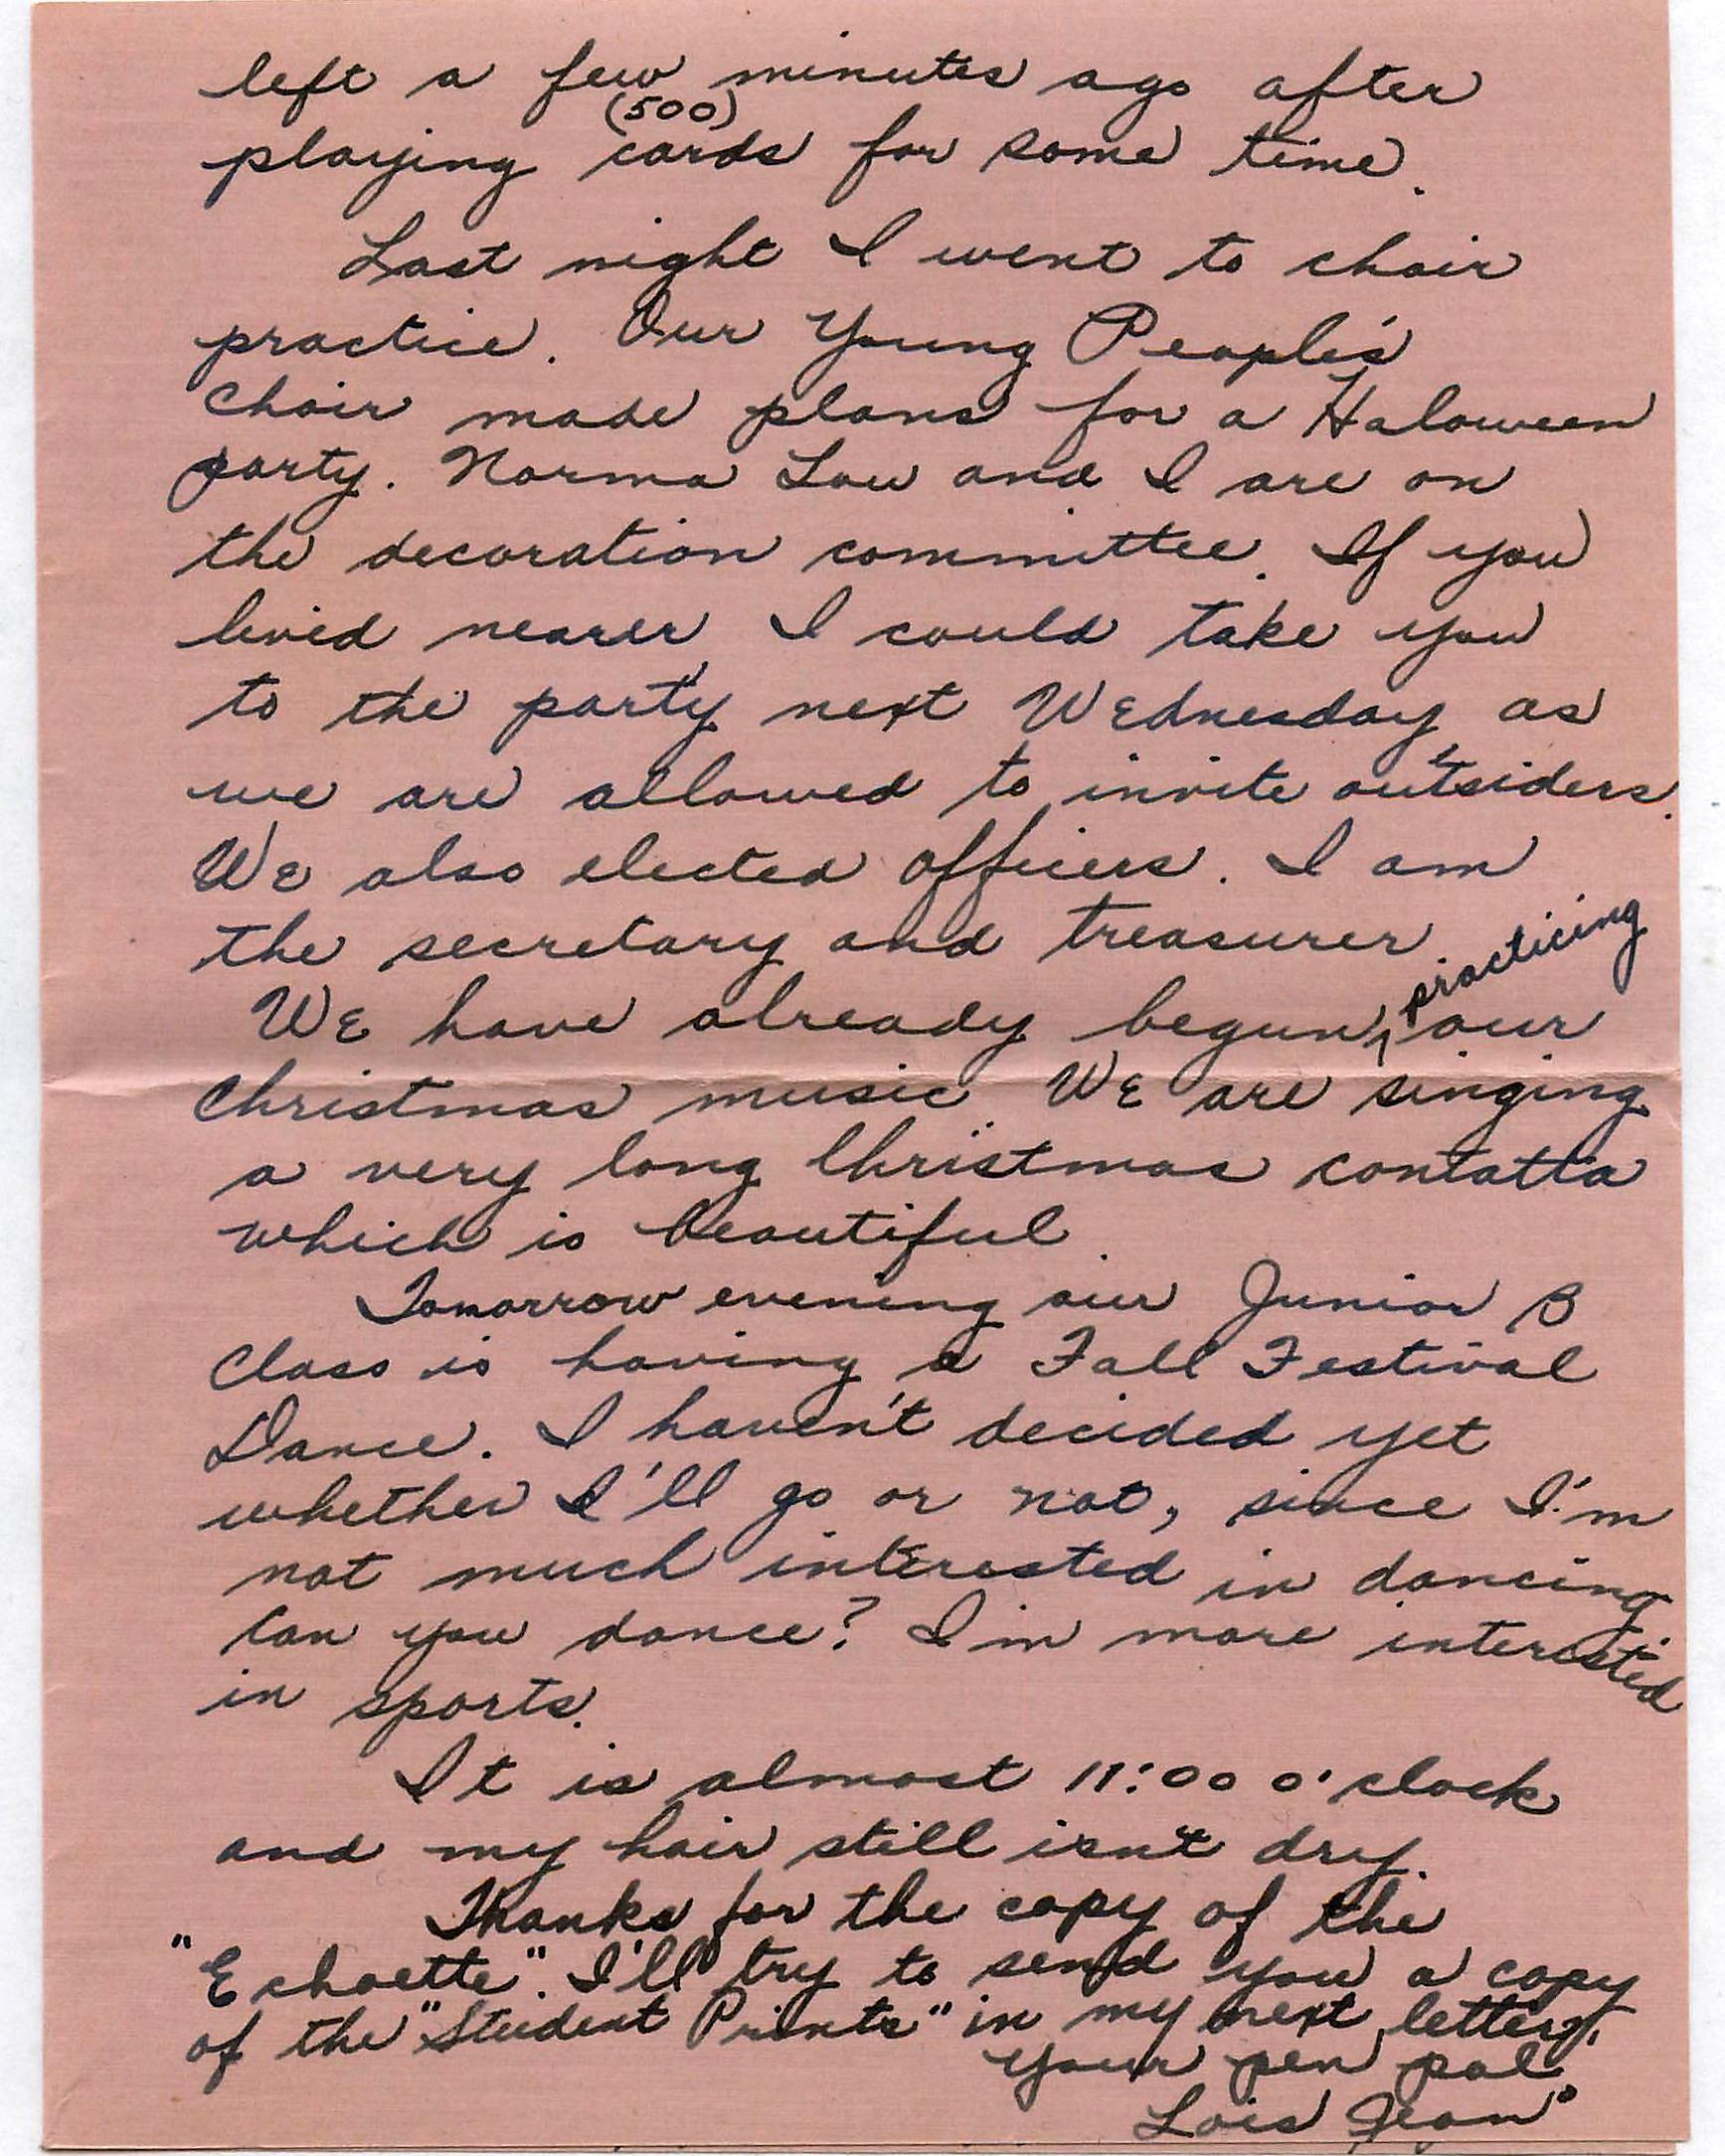 left a few minutes ago after
(500)
playing cards for some time.
Last night I went to choir
practice. Our Young People's
Choir made plans for a Haloween
party. Norma Lou and I are on
the decoration committee. If you
lived nearer I could take you
to the party next Wednesday as
we are allowed to invite outsiders.
We also elected officers. I am
the secretary and treasurer.
practicing
We have already begun, our
Christmas music. We are singing
a very long Christmas contatta
which is beautiful.
Tomorrow evening our Junior B
Class is having a Fall Festival
Dance. I haven't decided yet
whether I'll go or not, since I'm
not much interested in dancing
Can you dance? I'm more interested
in sports.
It is almost 11:00 o'clock
and my hair still isn't dry.
Thanks for the copy of the
"Echoette". I'll try to send you a copy
of the "Student Prints" in my next letter.
Your pen pal
Lois Jean